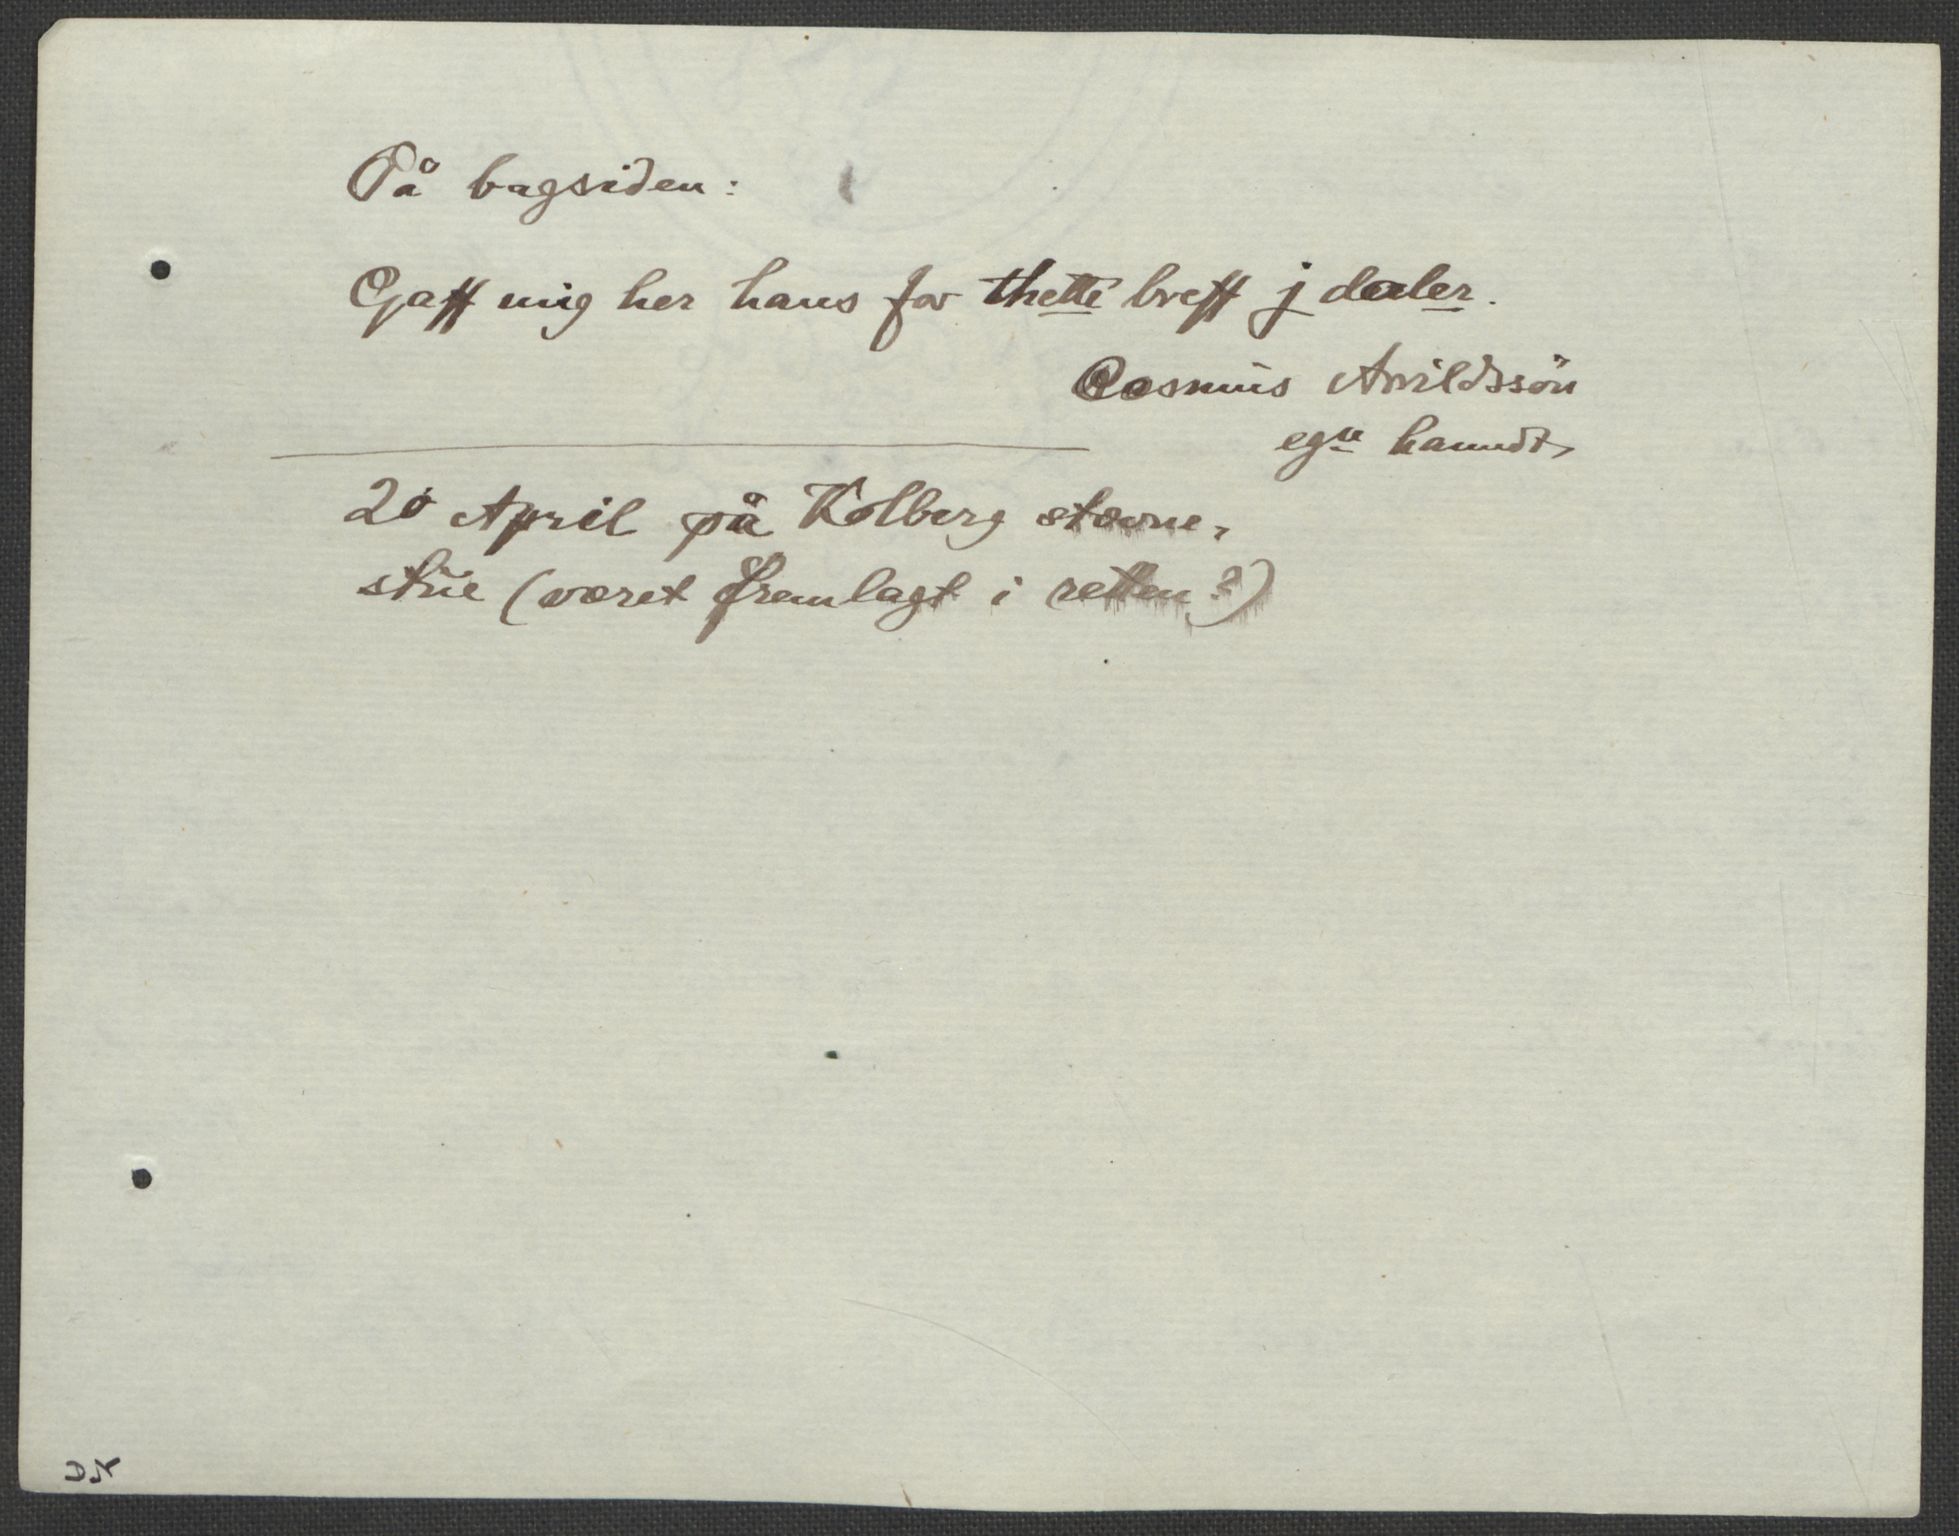 På bagsiden:
Gaff mig her hans for thette breff j daler.
Rasmus Arvildssön
egn hanndt,
20 April på Kolberg stævne,
stue (været fremlagt i retten?)